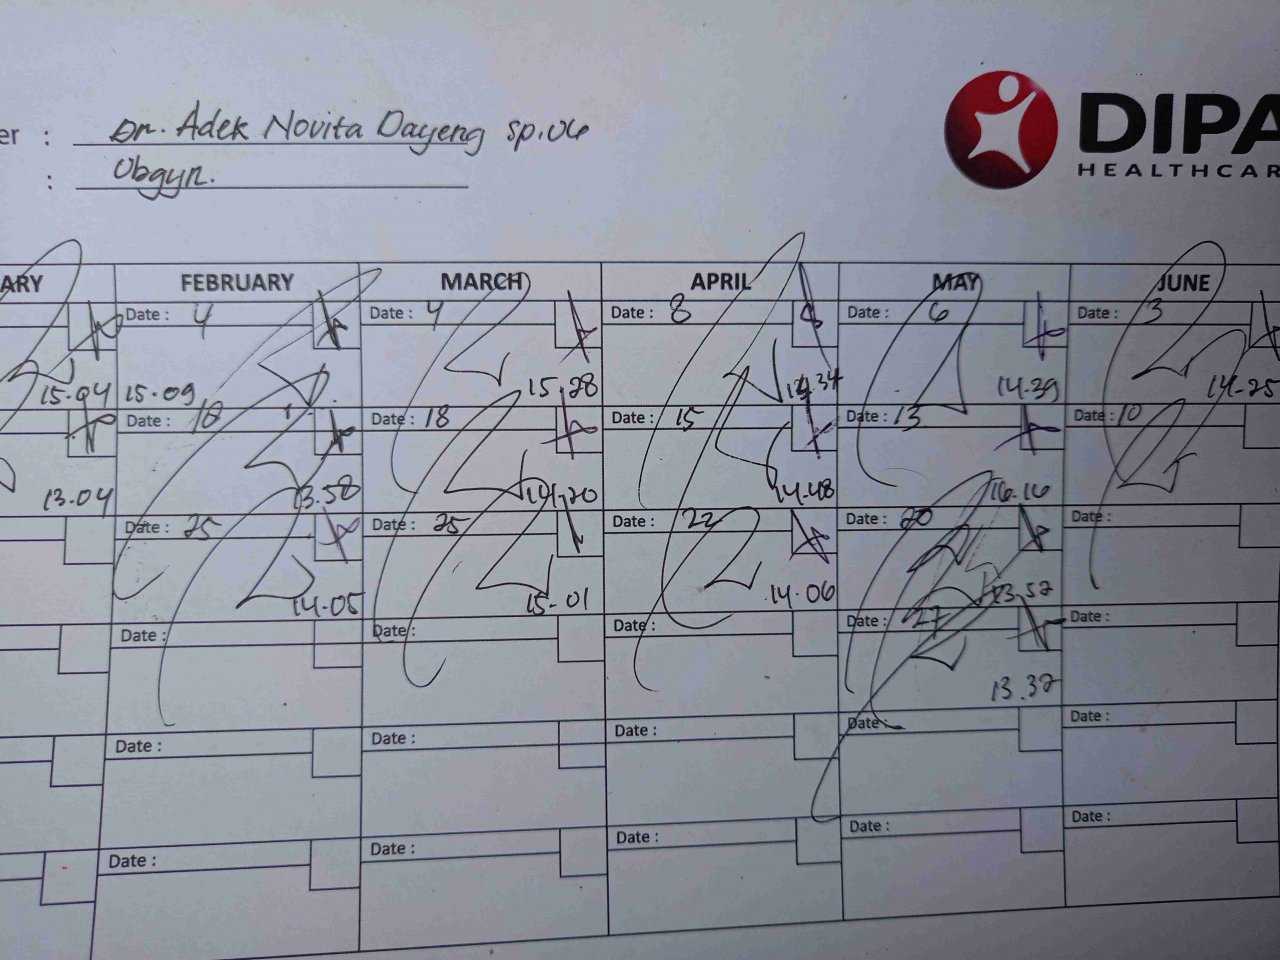 er : Dr. Adek Novita Dayeng sp.OG
: Obgyn.
DIPA
HEALTHCAR
ARY FEBRUARY MARCH APRIL MAY JUNE
Date : 4 Date : 4 Date : 8 Date : 6 Date : 3
15.04 15.09 15.28 14.34 14.39 14-25
Date : 18 Date : 18 Date : 15 Date : 13 Date : 10
13.04 13.58 14.20 14.48 16.16
Date : 25 Date : 25 Date : 22 Date : 20 Date :
14.05 15-01 14.06 13.52
Date : Date : Date : Date : 27 Date :
13.32
Date : Date : Date : Date : Date :
Date : Date : Date : Date : Date :